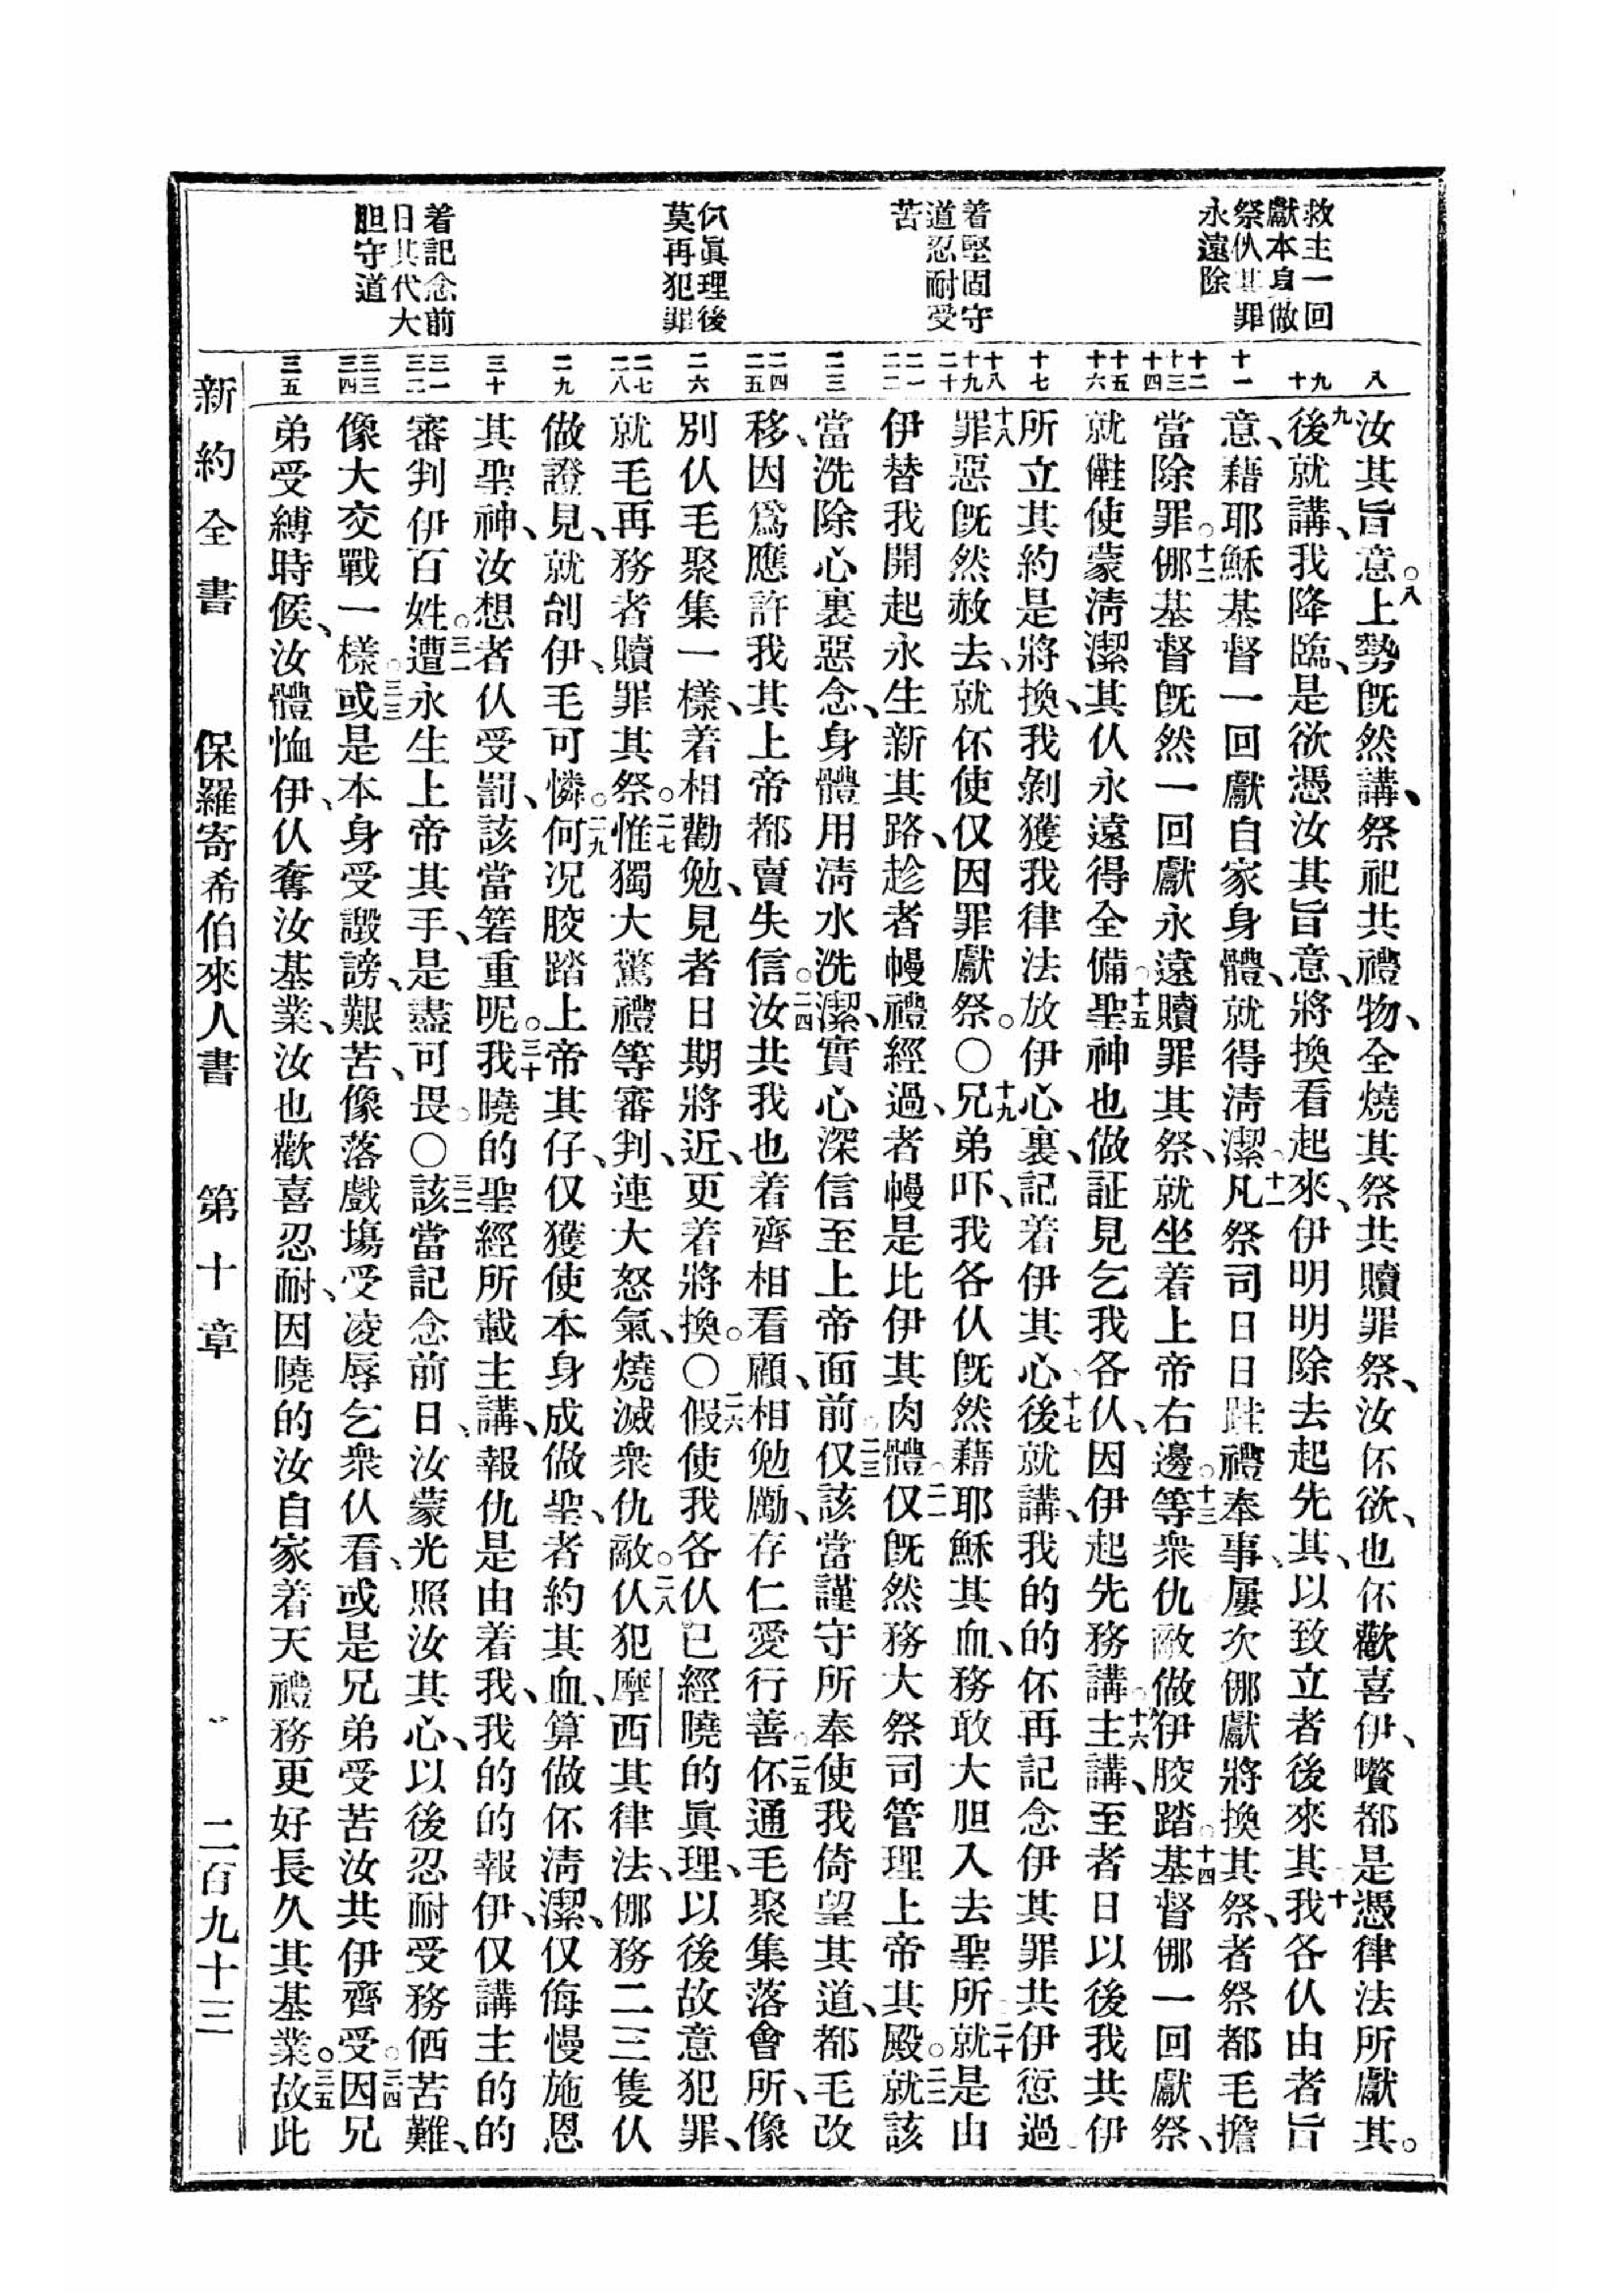 救主一回
獻本身做
祭仈其罪
永遠除
着堅固守
道忍耐受
苦
仈眞理後
莫再犯罪
着記念前
日其代大
胆守道
八
九 十
十一
十二 十三 十四
十五 十六
十七
十八 十九 二十
二一 二二
二三
二四 二五
二六
二七 二八
二九
三十
三一 三二
三三 三四
三五
汝其旨意。八上勢旣然講、祭祀共禮物、全燒其祭共贖罪祭、汝伓欲、也伓歡喜伊、嚽都是憑律法所獻其。
九後就講、我降臨、是欲憑汝其旨意、將換看起來、伊明明除去起先其、以致立者後來其、十我各仈由者旨
意、藉耶穌基督一回獻自家身體、就得淸潔。十一凡祭司日日跬禮奉事、屢次㑚獻將換其祭、者祭都毛擔
當除罪。十二㑚基督旣然一回獻永遠贖罪其祭、就坐着上帝右邊。十三等衆仇敵做伊骹踏。十四基督㑚一回獻祭、
就儺使蒙淸潔其仈永遠得全備。十五聖神也做証見乞我各仈、因伊起先務講。十六主講、至者日以後我共伊
所立其約是將換、我剝獲我律法放伊心裏、記着伊其心。十七後就講、我的的伓再記念伊其罪共伊愆過。
十八罪惡旣然赦去、就伓使仅因罪獻祭。〇十九兄弟吓、我各仈旣然藉耶穌其血、務敢大胆入去聖所。二十就是由
伊替我開起永生新其路、趁者幔禮經過、者幔是比伊其肉體。二一仅旣然務大祭司管理上帝其殿。二二就該
當洗除心裏惡念、身體用淸水洗潔、實心深信至上帝面前。二三仅該當謹守所奉使我倚望其道、都毛改
移、因爲應許我其上帝都賣失信。二四汝共我也着齊相看顧、相勉勵、存仁愛行善。二五伓通毛聚集落會所、像
別仈毛聚集一樣、着相勸勉、見者日期將近、更着將換。〇二六假使我各仈已經曉的眞理、以後故意犯罪、
就毛再務者贖罪其祭。二七惟獨大驚禮等審判、連大怒氣、燒滅衆仇敵。二八仈犯摩西其律法、㑚務二三隻仈
做證見、就刣伊、毛可憐。二九何况骹踏上帝其仔、仅獲使本身成做聖、者約其血、算做伓淸潔、仅侮慢施恩
其聖神、汝想者仈受罰、該當箬重呢。三十我曉的聖經所載主講、報仇是由着我、我的的報伊、仅講主的的
審判伊百姓。三一遭永生上帝其手、是盡可畏。〇三二該當記念前日、汝蒙光照汝其心、以後忍耐受務価苦難、
像大交戰一樣。三三或是本身受譭謗、艱苦、像落戲塲受凌辱乞衆仈看、或是兄弟受苦汝共伊齊受。三四因兄
弟受縛時候、汝體恤伊、仈奪汝基業、汝也歡喜忍耐、因曉的汝自家着天禮務更好長久其基業。三五故此
新約全書 保羅寄希伯來人書 第十章 二百九十三